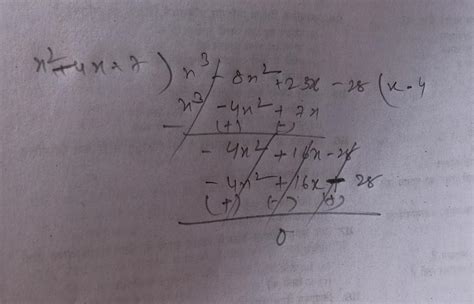 x² - 4x + 7 ) x³ - 8x² + 23x - 28 ( x - 4
x³ - 4x² + 7x
- (+) (-)
- 4x² + 16x - 28
- 4x² + 16x - 28
(+) (-) (+)
0